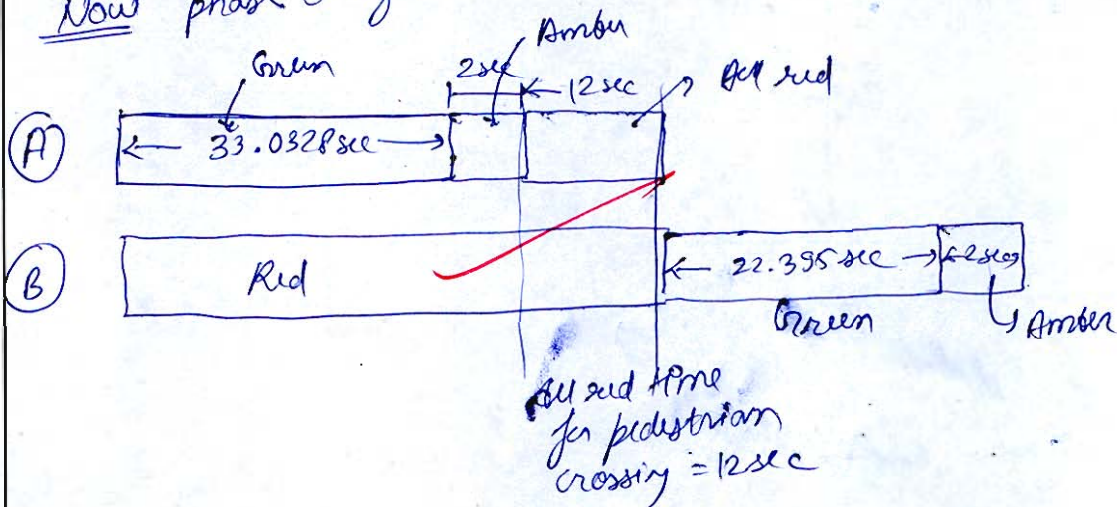 Now phase
Amber
Green
2sec
12sec
All red
A
33.0328sec
B
Red
22.395 sec
2sec
Green
Amber
All red time
for pedestrian
crossing = 12sec